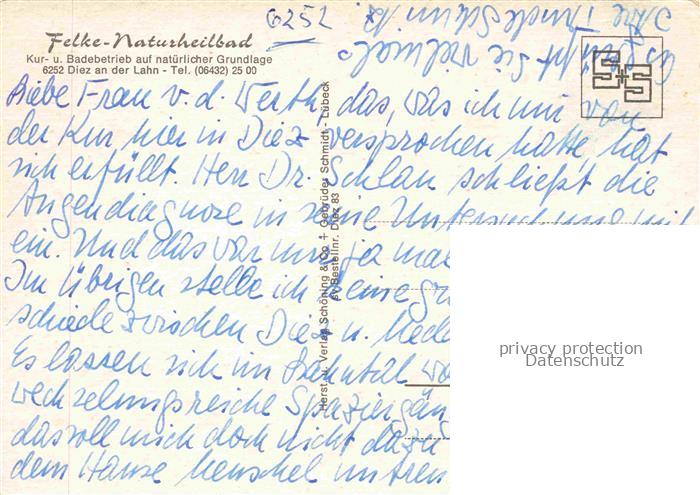 6252
Felke-Naturheilbad
Kur- u. Badebetrieb auf natürlicher Grundlage
6252 Diez an der Lahn - Tel. (06432) 25 00
Liebe Frau v. d. Werth, das, was ich mir von
der Kur hier in Diez versprochen hatte, hat
sich erfüllt. Herr Dr. Schlan schließt die
Augendiagnose in seine Untersuchung mit
ein. Und das war mir ja
Im Übrigen stelle ich keine
schiede zwischen Diez u.
Es lassen sich im Lahntal
wechselungsreiche Spaziergän
das soll mich doch nicht dazu
dem Hause Menschel untreu
Es grüßt Sie vielmals
Ihre
Herst. u. Verlag Schöning & Co + Gebrüder Schmidt - Lübeck
sv Bestellnr. Diez 83
S+S
privacy protection
Datenschutz